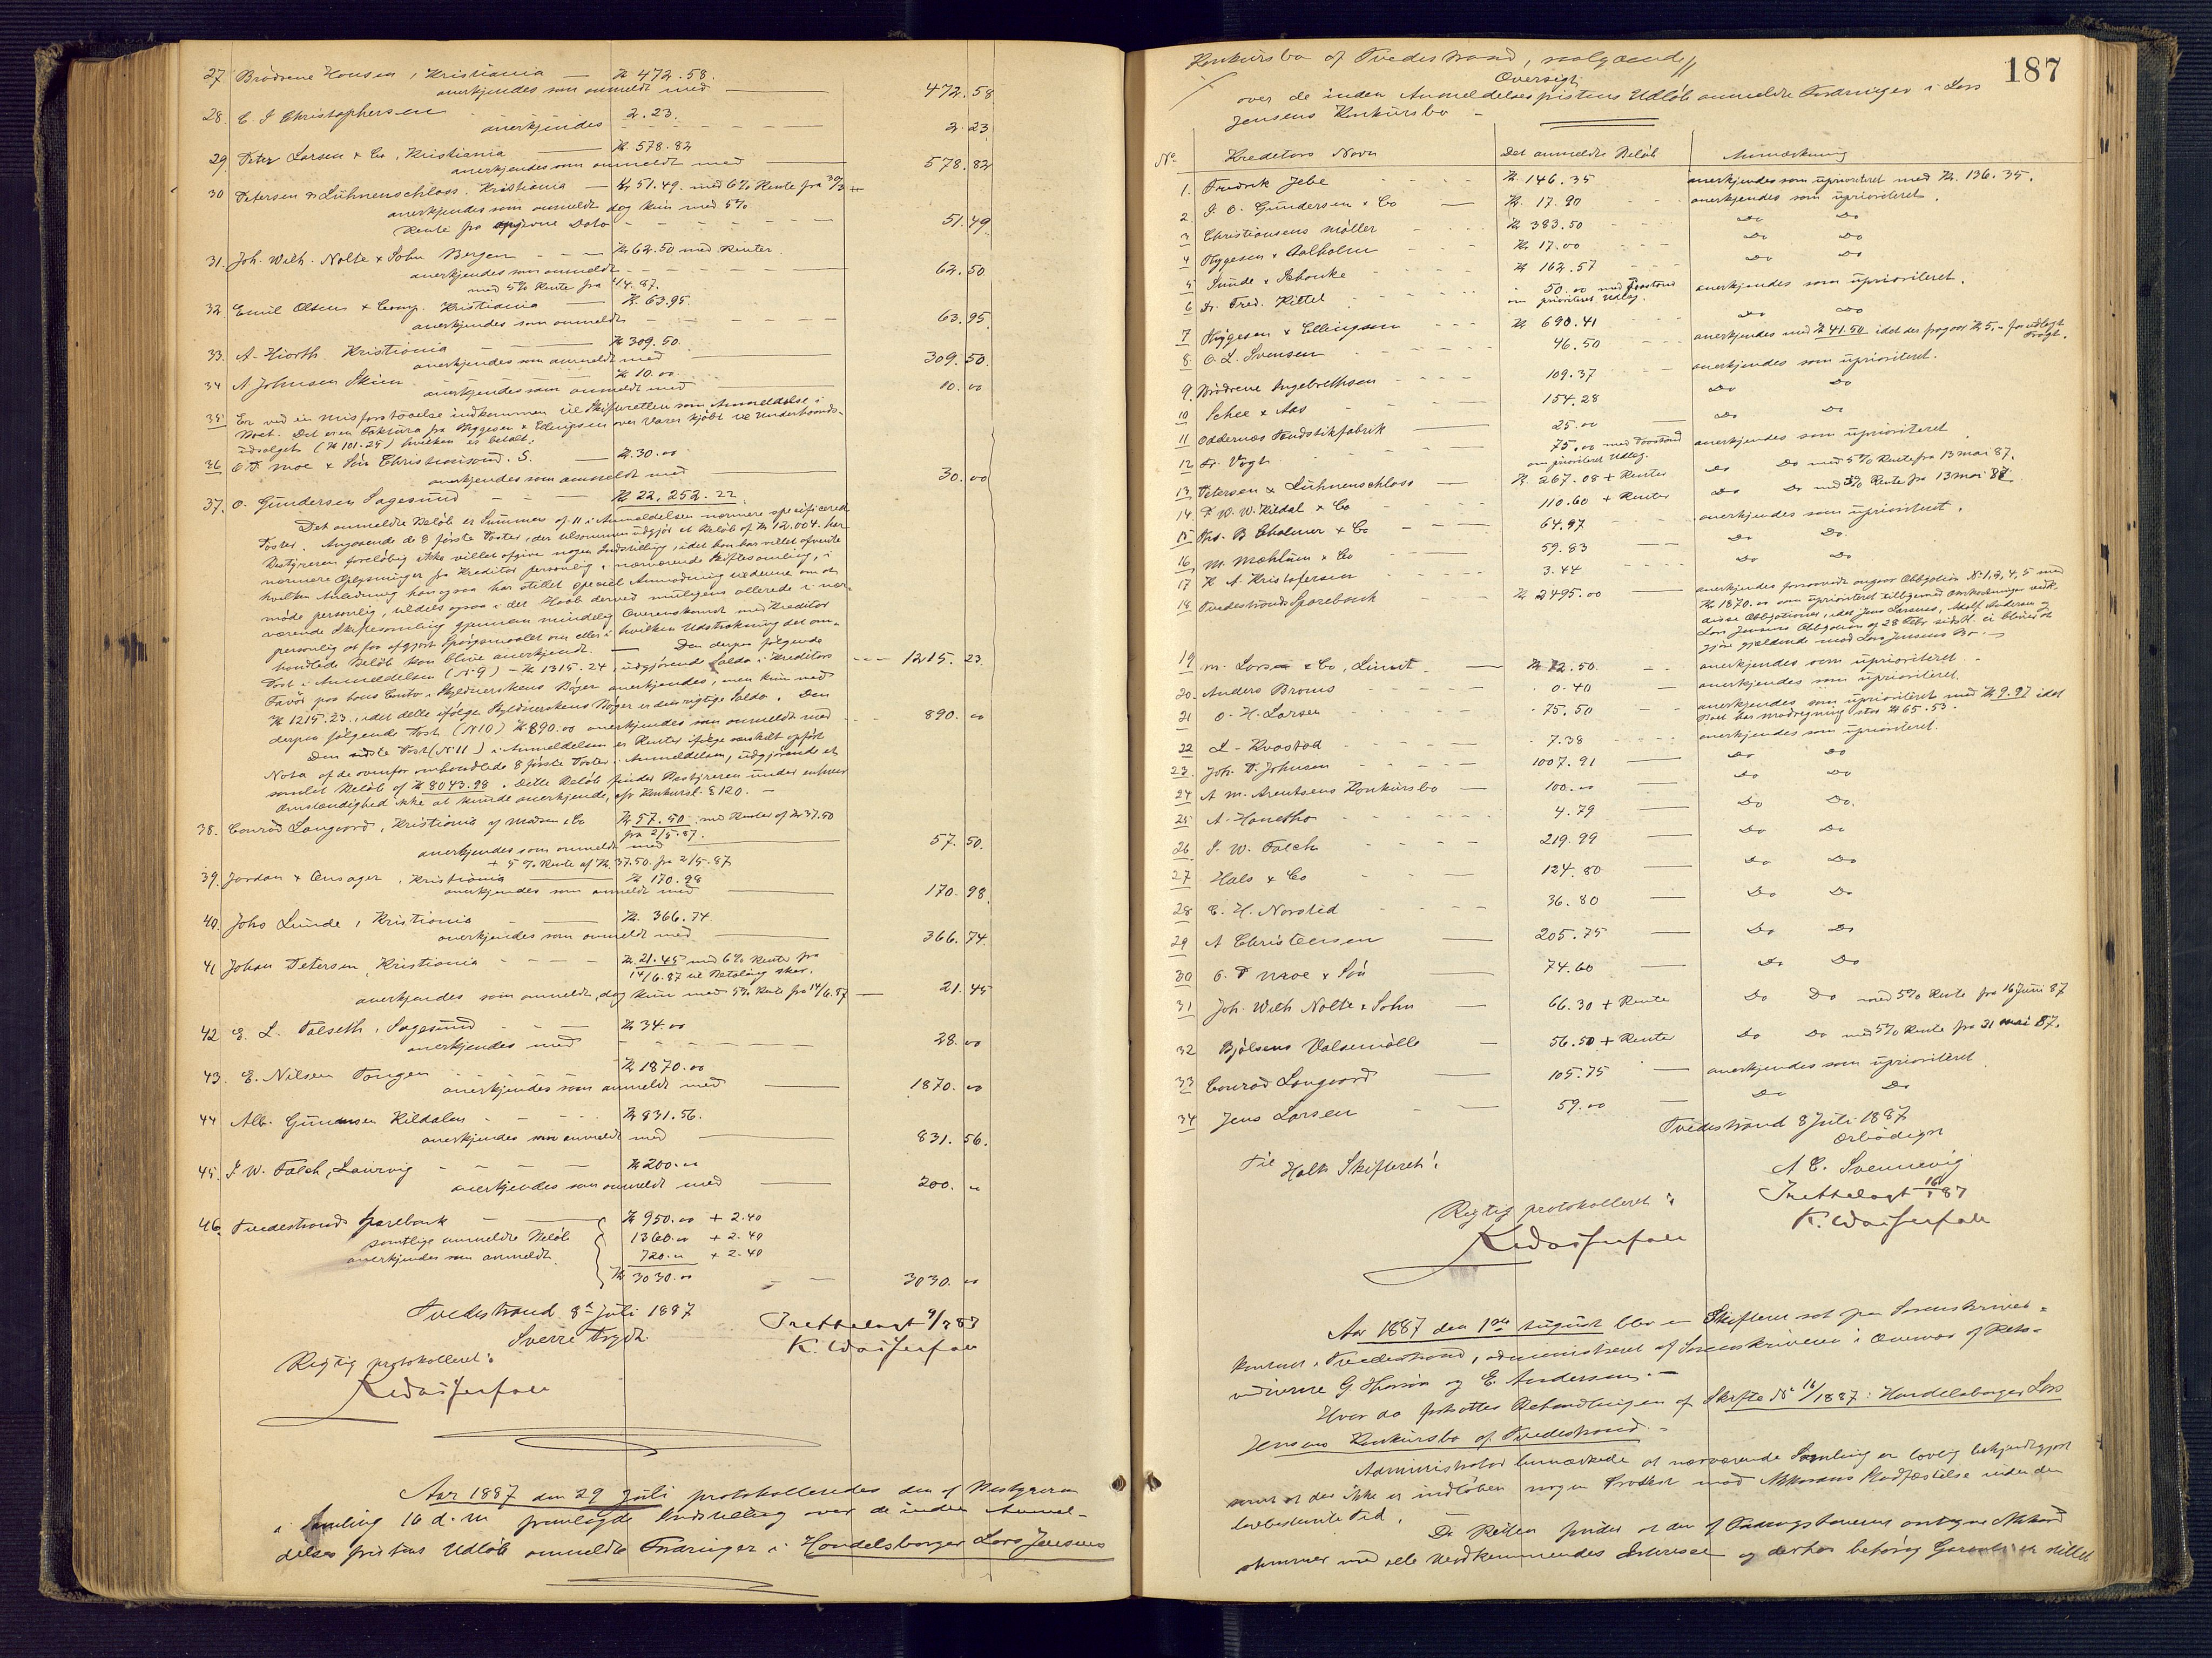 27 Brødrene Hansen, Kristiania — Kr 472.58.
anerkjendes som anmeldt med — 472.58
28. C. J Christophersen 2.23.
anerkjendes 2.23
29. Peter Larsen & Co, Kristiania — Kr. 578.82
anerkjendes som anmeldt med — 578.82
30 Petersen & Lühnenschloss, Kristiania — Kr 51.49. med 6% Rente fra 30/3
anerkjendes som anmeldt dog kun med 5%
Rente fra opgivne Dato 51.49
31. Joh. Wilh. Nolte & Sohn Bergen — Kr 62.50 med Renter.
anerkjendes som anmeldt 62.50
med 5% Rente fra
32 Emil Olsen & Comp. Kristiania — Kr. 63.95.
anerkjendes som anmeldt 63.95
33. A. Hiorth Kristiania — Kr 309.50.
anerkjendes som anmeldt med 309.50.
34 A Johnsen Skien Kr 10.00
anerkjendes som anmeldt med — 10.00
35 Er ved en misforstaaelse indkommen til Skifteretten som Anmeldelse i
Boet. Det er en Faktura fra Nyggesen & Ellingsen over Varer kjøbt ved Underhaands-
udsalget (Kr 101.25) hvilken er betalt.
36 O T Moe & Søn Christianssund. S. — Kr. 30.00
anerkjendes som anmeldt med — 30.00
37. O. Gundersen Sagesund — Kr 22,252.22
Det anmeldte Beløb er Summen af 11 i Anmeldelsen nærmere specificerede
Poster. Angaaende de 8 første Poster, der tilsammen udgjør et Beløb af Kr 12.004. har
Bestyreren foreløbig ikke villet afgive nogen Indstilling, idet han har villet afvente
nærmere Oplysninger fra Kreditor personlig i nærværende Skiftesamling, i
hvilken Anledning han ogsaa har stillet speciel Anmodning til denne om at
møde personlig, tildels ogsaa i det Haab derved muligens allerede i nær-
værende Skiftesamling gjennem mindelig Overenskomst med Kreditor
personlig at faa afgjort Spørgsmaalet om eller i hvilken Udstrækning det om-
handlede Beløb kan blive anerkjendt. — Den derpaa følgende
Post i Anmeldelsen (N 9) — Kr 1315.24, udgjørende Saldo i Kreditors
Favør paa hans Conto i Skyldnerskens Bøger anerkjendes, men kun med
Kr 1215.23., idet dette ifølge Skyldnerskens Bøger er den rigtige Saldo. Den — 1215.23.
derpaa følgende Post (N 10) Kr 890.00 anerkjendes som anmeldt med — 890.00
Den sidste Post (N 11) i Anmeldelsen er Renter ifølge særskilt opført
Nota af de ovenfor omhandlede 8 første Poster i Anmeldelsen, udgjørende et
samlet Beløb af Kr 8043.98. Dette Beløb finder Bestyreren under enhver
Omstændighed ikke at kunde anerkjende, cfr Konkursl. § 120. —
38. Conrad Langaard, Kristiania af Madsen & Co Kr 57.50 med Renter af Kr 37.50
fra 2/5.87.
anerkjendes som anmeldt med — 57.50.
+ 5% Rente af Kr. 37.50. fra 2/5.87
39. Jordan & Onsager, Kristiania — Kr 170.98
anerkjendes som anmeldt med — 170.98.
40. Johs Lunde, Kristiania — Kr. 366.74.
anerkjendes som anmeldt med — 366.74.
41 Johan Petersen, Kristiania — Kr. 21.45 med 6% Renter fra
14/6.87 til Betaling sker.
anerkjendes som anmeldt, dog kun med 5% Rente fra 14/6.87 — 21.45
42 E. L. Falseth, Sagesund — Kr 34.00
anerkjendes med 28.00
43. E. Nilsen Tangen Kr 1870.00
anerkjendes som anmeldt med — 1870.00
44 Alb. Kildalen — Kr 831.56.
anerkjendes som anmeldt med — 831.56.
45. J W. Falch, Laurvig — Kr 200.00
anerkjendes som anmeldt med — 200. "
46. Tvedestrands Sparebank — Kr 950.00 + 2.40
samtlige anmeldte Beløb 1360.00 + 2.40
anerkjendes som anmeldt. 720.00 + 2.40
Kr 3030.00 — 3030.00
Tvedestrand 8de Juli 1887
Sverre Frydt
Irettelagt 9/7 87
K. Wasserfall
Rigtig protokolleret:
K Wasserfall
Aar 1887 den 29 Juli protokolleredes den af Bestyreren
i Samling 16 d. M fremlagde Indstilling over de inden Anmel-
delses fristens Udløb anmeldte Fordringer i Handelsborger Lars Jensens
187
Konkursbo af Tvedestrand, saalydende
Oversigt
over de inden Anmeldelsesfristens Udløb anmeldte Fordringer i Lars
Jensens Konkursbo —
No. Kreditors Navn Det anmeldte Beløb Anmærkning
1. Fredrik Jebe Kr. 146.35 anerkjendes som uprioriteret med Kr. 136.35.
2 J. O. Gundersen & Co — Kr. 17.90 anerkjendes som uprioriteret.
3 Christiansens Møller Kr 383.50 Do Do
4 Nygesen & Aalholm Kr 17.00 Do Do
5 Sunde & Schanke Kr 162.57 Do Do
6 Dr. Fred. Kittel " 50.00 med Paastand anerkjendes som uprioriteret.
om prioriteret Udlæg.
7 Nyggesen & Ellingsen Kr 690.41 Do Do
8. O. L. Svensen 46.50 anerkjendes med Kr 41.50 idet der fragaar Kr 5,- for udlagt Fragt.
9. Brødrene Ingebrethsen 109.37 anerkjendes som uprioriteret.
10 Schee & Aas 154.28 Do Do
11 Oddernæs Fyrstikfabrik — 25.00 Do Do
12 Dr. Vogt 75.00 med Paastand anerkjendes som uprioriteret
om prioriteret Udlæg.
13 Petersen & Lühnenschloss — Kr. 267.08 + Renter Do Do med 5% Rente fra 13 mai 87.
14. F W. W. Kildal & Co 110.60 + Renter Do Do med 5% Rente fra 13 mai 87
15 Ths. B Chalmer & Co 64.97 anerkjendes som uprioriteret.
16 M. Mæhlum & Co 59.83 Do Do.
17 K A Kristofersen 3.44 Do Do
18 Tvedestrands Sparebank Kr 2495.00 — anerkjendes forsaavidt angaar Obligation N. 1, 2, 4, 5 med
Kr 1870.00 som uprioriteret tilligemed Omkostninger vedk.
disse Obligationer, idet Jens Larsens, Adolf Andersen og
Lars Jensens Obligation af 28 Febr sidstl. ei bliver at
gjøre gjældende mod Lars Jensens Bo. —
19 M. Larsen & Co, Limit — Kr 12.50 anerkjendes som uprioriteret.
20. Anders Broms 0.40 anerkjendes som uprioriteret.
21 O. H. Larsen 75.50 anerkjendes som uprioriteret med Kr 9.97 idet
Boet har modregning stor Kr 65.53.
22 L. Kvastad 7.38 anerkjendes som uprioriteret.
23. Joh. P. Johnsen 1007.91 Do Do
24 A M. Arentsens Konkursbo — 100.00 Do Do
25 A. Hanetho 4.79 Do Do.
26 J. W. Falch 219.99 Do Do
27 Hals & Co 124.80 Do Do
28 C. H. Norsted 36.80 Do Do
29 A Christensen — 205.75 Do Do
30 O. T Moe & Søn — 74.60 Do Do
31 Joh. Wilh Nolte & Sohn — 66.30 + Rente Do Do med 5% Rente fra 16 Juni 87
32 Bjølsens Valsemølle — 56.50 + Renter Do Do med 5% Rente fra 21 mai 87.
33 Conrad Langaard — 105.75 anerkjendes som uprioriteret
34 Jens Larsen — 59.00 Do Do
Tvedestrand 8 Juli 1887
Ærbødigst
A C. Svennevig
Til Holts Skifteret!
Irettelagt 16/7 87
K. Wasserfall
Rigtig protokolleret:
K Wasserfall
Aar 1887 den 1ste August blev en Skifteret sat paa Sorenskriver-
kontoret i Tvedestrand, administreret af Sorenskriveren i Overvær af Rets-
vidnerne G. og E. Andersen. —
Hvor da fortsattes Behandlingen af Skifte No 16/1887: Handelsborger Lars
Jensens Konkursbo af Tvedestrand. —
Administrator bemærkede at nærværende Samling er lovlig bekjendtgjort
samt at der ikke er indløben nogen Protest mod Akkordens Stadfæstelse inden den
lovbestemte Tid.
Da Retten finder at den af Fordringshaverne antagne Akkord
stemmer med alle Vedkommendes Interesse og derhos behørig Garanti er stillet